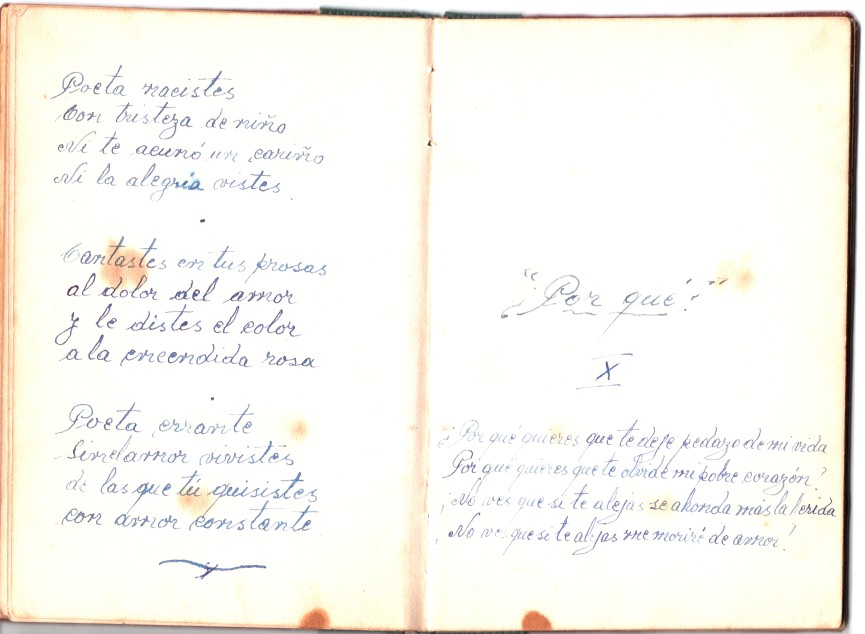 Poeta nacistes
Con tristeza de niño
Ni te acunó un cariño
Ni la alegria vistes.
Cantastes en tus prosas
al dolor del amor
y le distes el color
a la encendida rosa
Poeta errante
Sin el amor vivistes
de las que tú quisistes
con amor constante
"¿Por qué?"
X
¿Por qué quieres que te deje pedazo de mi vida
Por qué quieres que te olvide mi pobre corazón?
¡No ves que si te alejas se ahonda más la herida
No ves que si te alejas me moriré de amor!